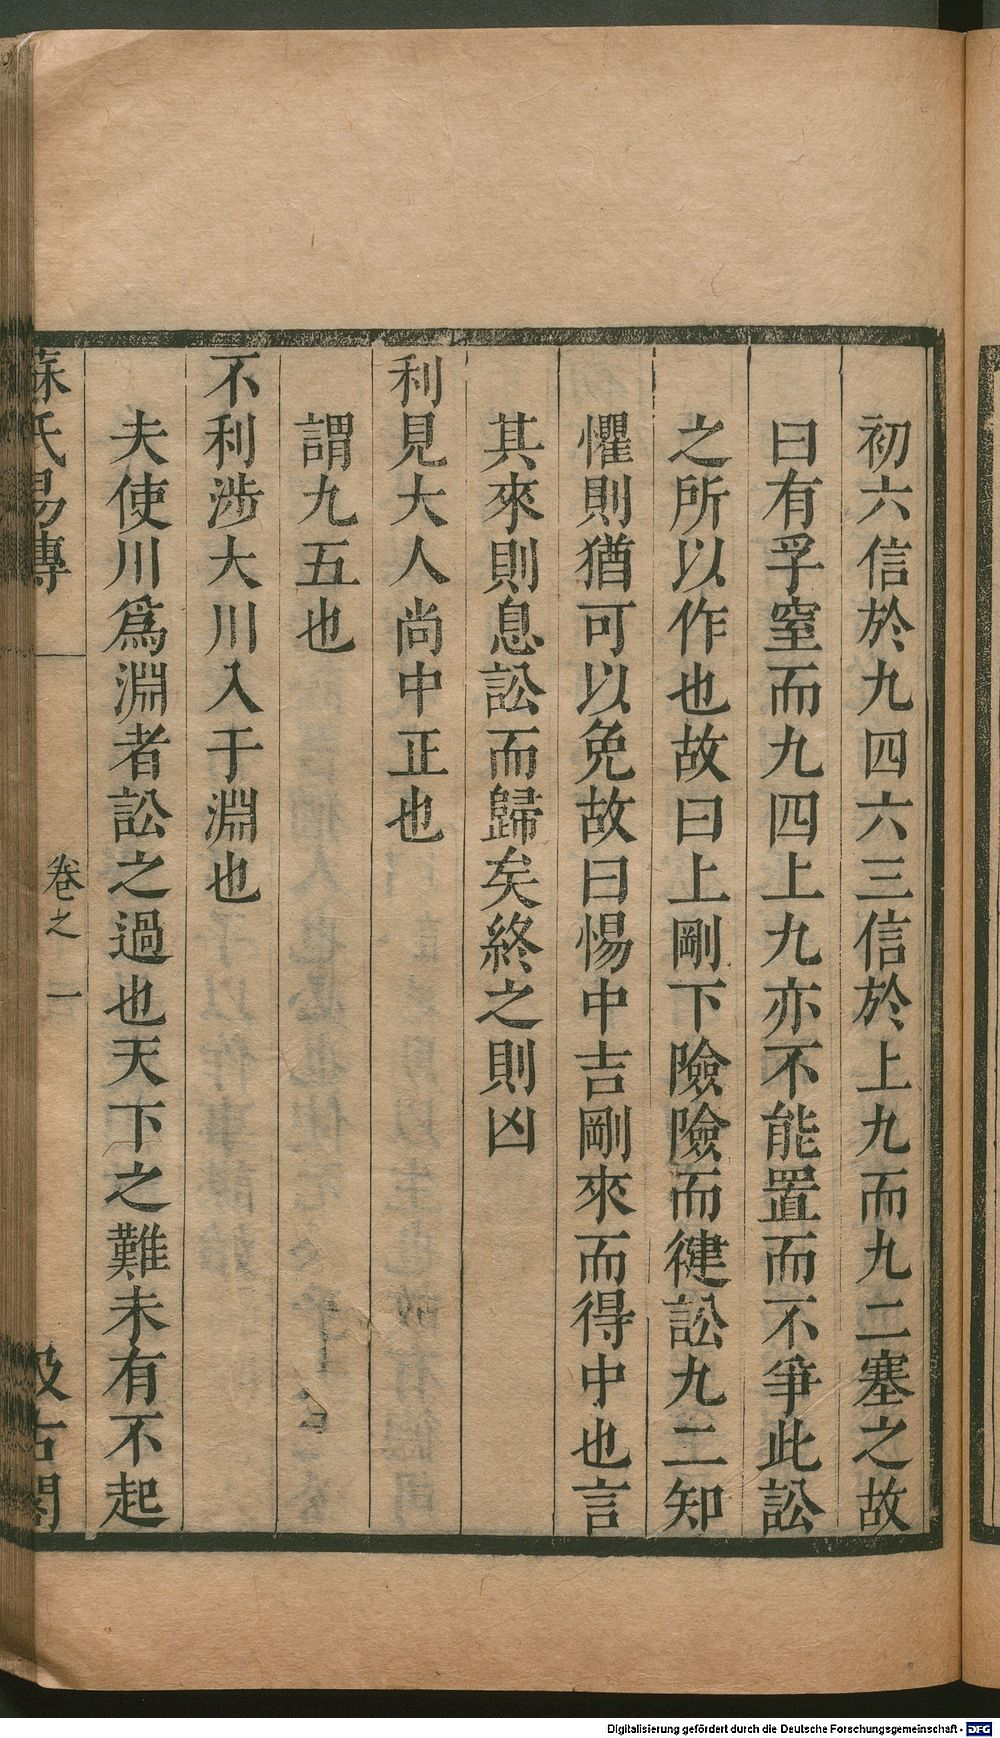 初六信於九四六三信於上九而九二塞之故
曰有孚窒而九四上九亦不能置而不爭此訟
之所以作也故曰上剛下險險而健訟九二知
懼則猶可以免故曰惕中吉剛來而得中也言
其來則息訟而歸矣終之則凶
利見大人尚中正也
謂九五也
不利涉大川入于淵也
夫使川爲淵者訟之過也天下之難未有不起
蘇氏易傳
卷之一
汲古閣
Digitalisierung gefördert durch die Deutsche Forschungsgemeinschaft - DFG